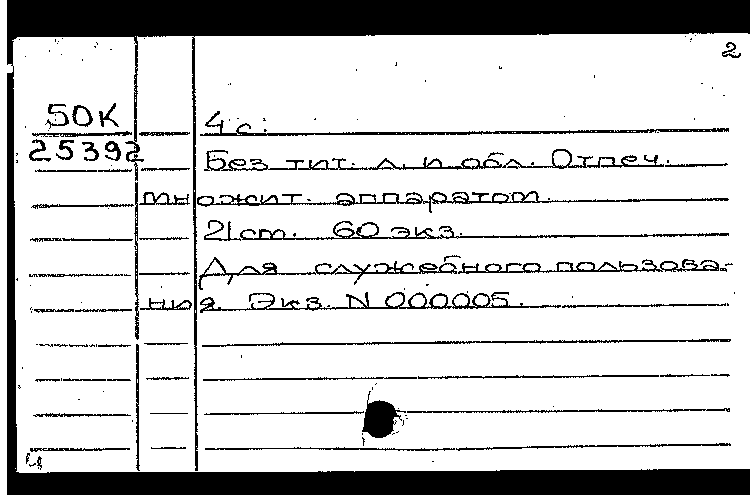 2
50К 4 с.
25392
Без тит. л. и обл. Отпеч.
множит. аппаратом.
21 ст. 60 экз.
Для служебного пользова-
ния. Экз. N 000005.